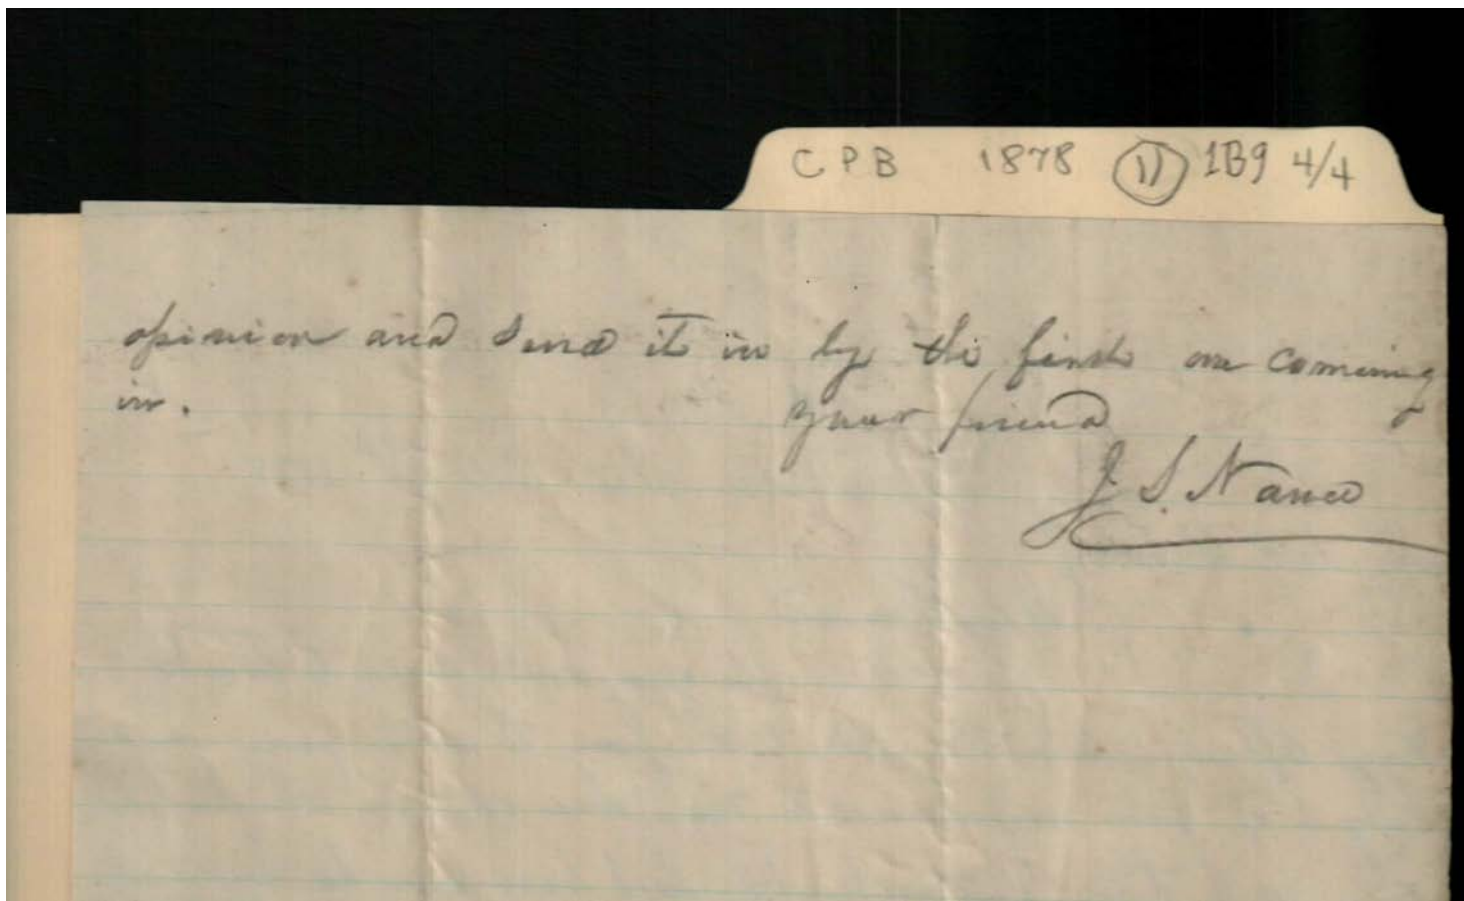 CPB 1878 (11) 1B9 4/4
opinion and send it in by the first one coming
in.
your friend
J. S. Nance